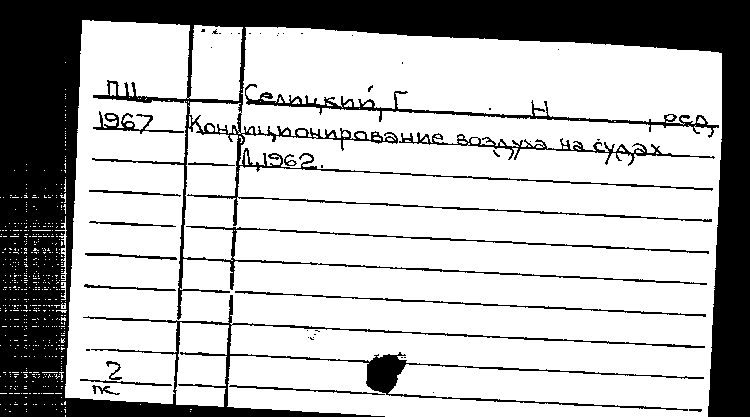 ПЦ Селицкий, Г. Н , ред,
1967 Кондиционирование воздуха на судах.
Л, 1962.
2
пк